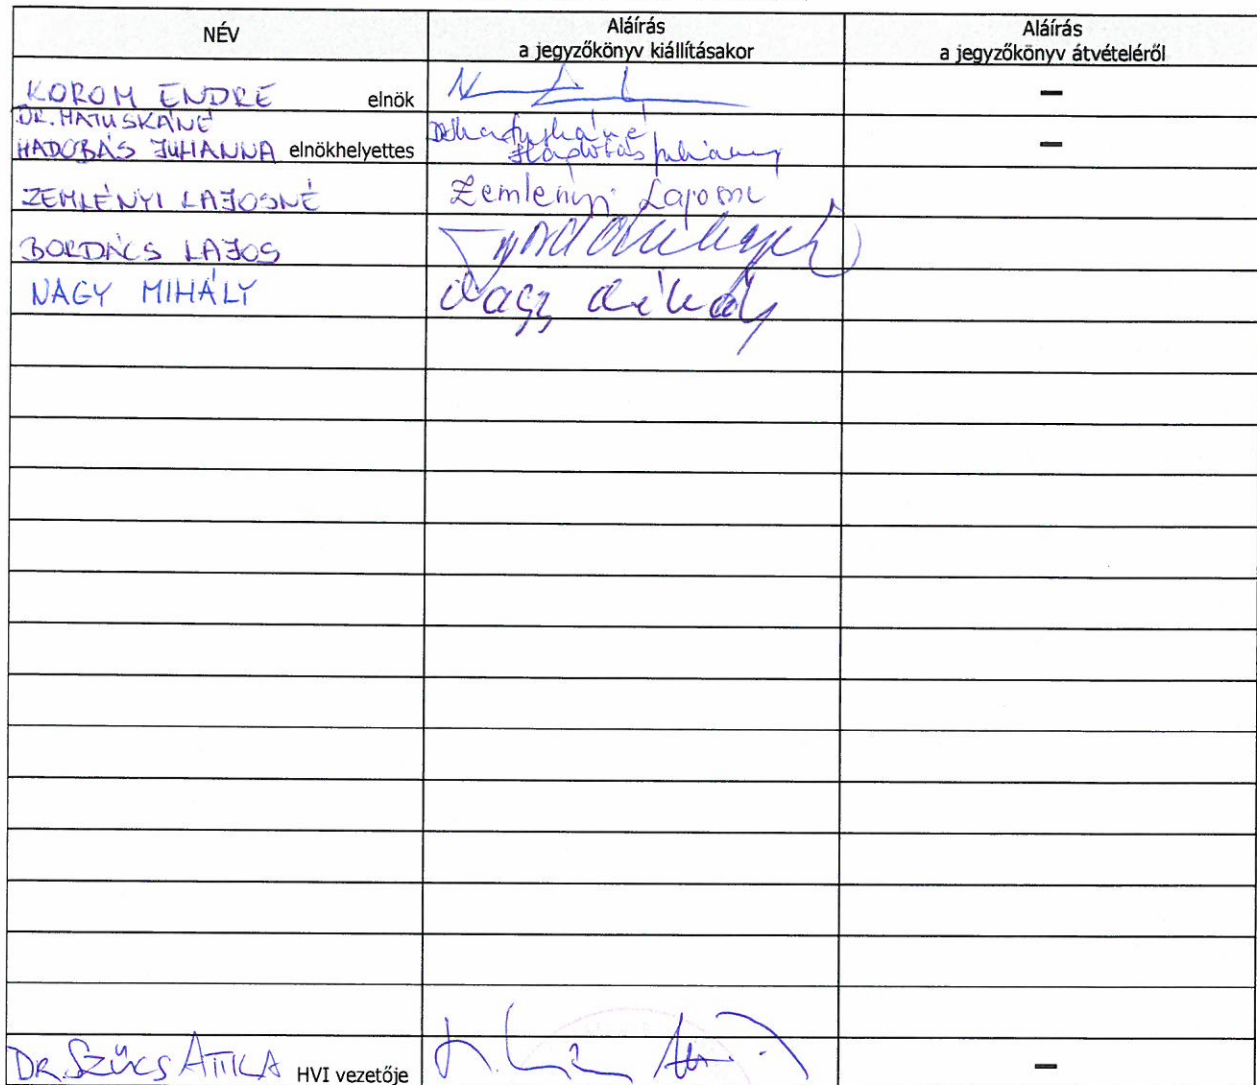 NÉV
Aláírás
a jegyzőkönyv kiállításakor
Aláírás
a jegyzőkönyv átvételéről
KOROM ENDRE elnök
–
DR. MATUSKÁNÉ
HADOBÁS JUHANNA elnökhelyettes
–
ZEMLÉNYI LAJOSNÉ Zemlényi Lajosné
BORDÁCS LAJOS
NAGY MIHÁLY Nagy Mihály
DR. SZŰCS ATTILA HVI vezetője
–